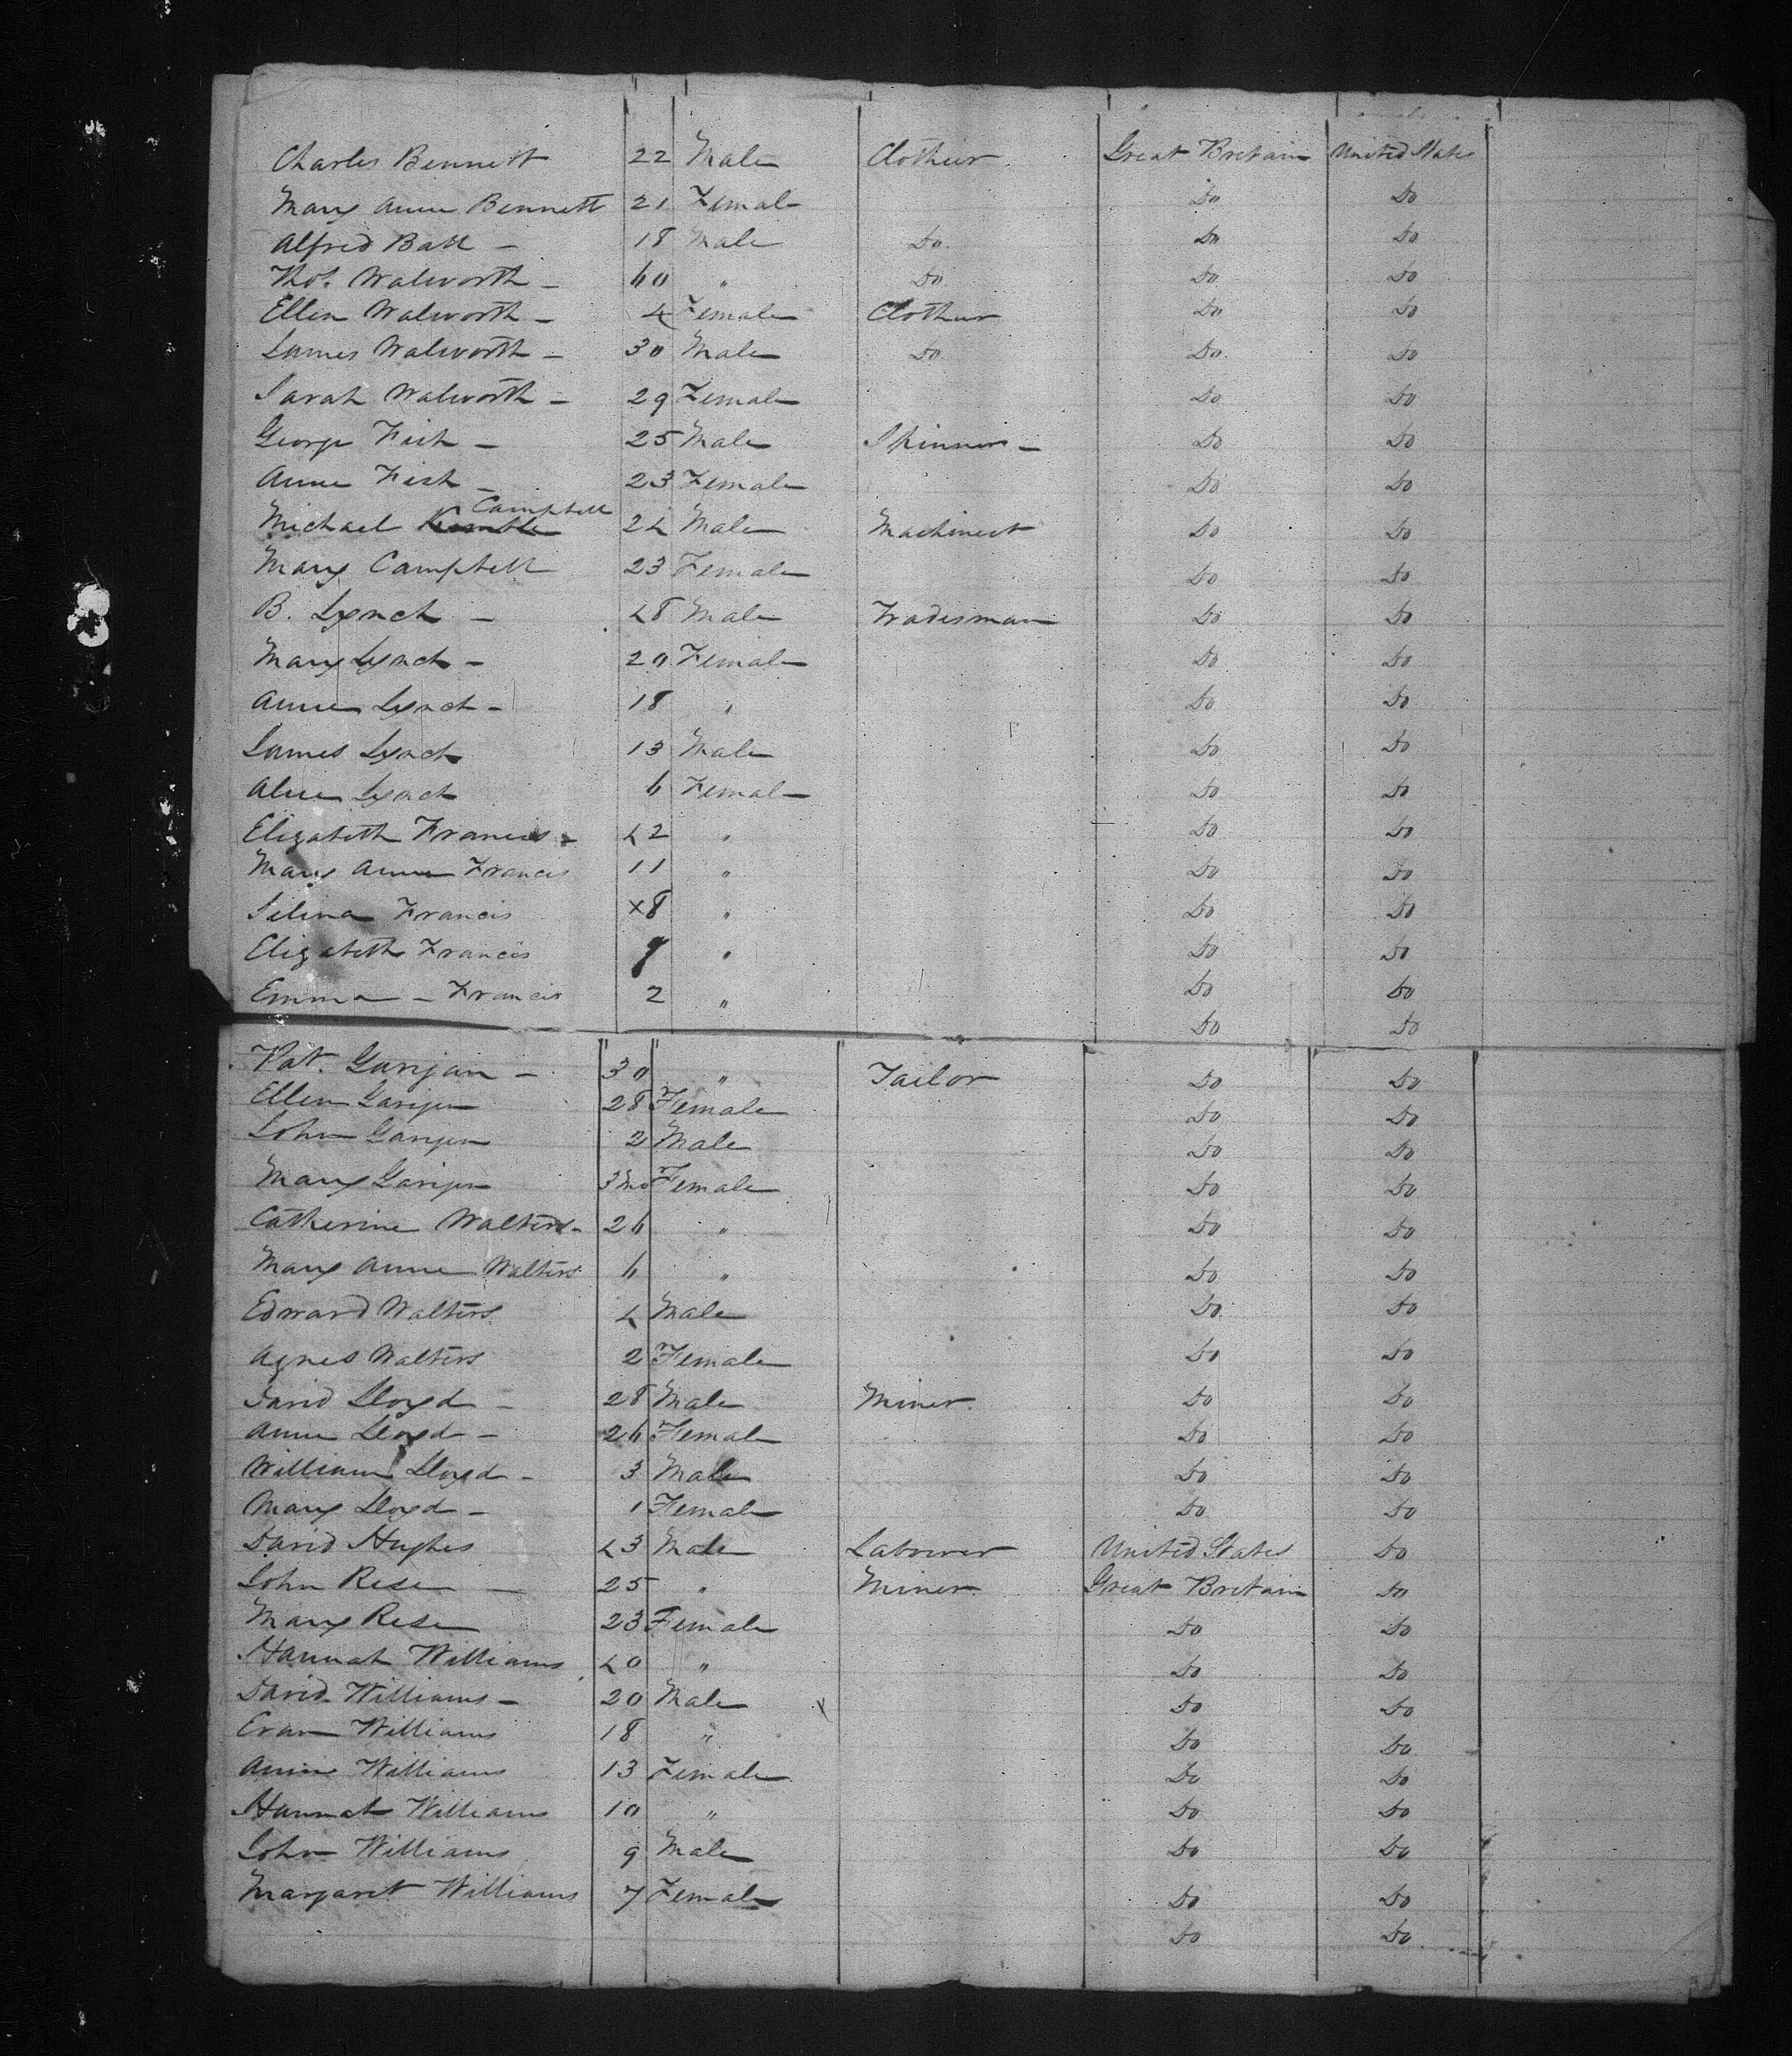 Charles Bennett 22 Male Clothier Great Britain United States
Mary Anne Bennett 21 Female Do Do
Alfred Ball - 18 Male Do Do Do
Thos. Walworth - 60 " Do Do Do
Ellen Walworth - 4 Female Clothier Do Do
James Walworth - 30 Male Do Do Do
Sarah Walworth - 29 Female Do Do
George Fish - 25 Male Skinner - Do Do
Anne Fish - 23 Female Do Do
Michael Kemble Campbell 24 Male Machinest Do Do
Mary Campbell 23 Female Do Do
B. Lynch - 48 Male Tradesman Do Do
Mary Lynch - 20 Female Do Do
Anne Lynch - 18 " Do Do
James Lynch 13 Male Do Do
Alice Lynch 6 Female Do Do
Elizabeth Francis - 42 " Do Do
Mary Anne Francis 11 " Do Do
Silina Francis x8 " Do Do
Elizabeth Francis " Do Do
Emma - Francis 2 " Do Do
Do Do
Pat. Garigan - 30 " Tailor Do Do
Ellen Garigan 28 Female Do Do
John Garigan 2 Male Do Do
Mary Garigan 3 Mo Female Do Do
Catherine Walters - 26 " Do Do
Mary Anne Walters 6 " Do Do
Edward Walters 4 Male Do Do
Agnes Walters 2 Female Do Do
David Lloyd - 28 Male Miner Do Do
Anne Lloyd - 26 Female Do Do
William Lloyd - 3 Male Do Do
Mary Lloyd - 1 Female Do Do
David Hughes 43 Male Labourer United States Do
John Rese - 25 " Miner Great Britain Do
Mary Rese 23 Female Do Do
Hannah Williams 40 " Do Do
David Williams - 20 Male Do Do
Evan Williams 18 " Do Do
Anne Williams 13 Female Do Do
Hannah Williams 10 " Do Do
John Williams 9 Male Do Do
Margaret Williams 7 Female Do Do
Do Do